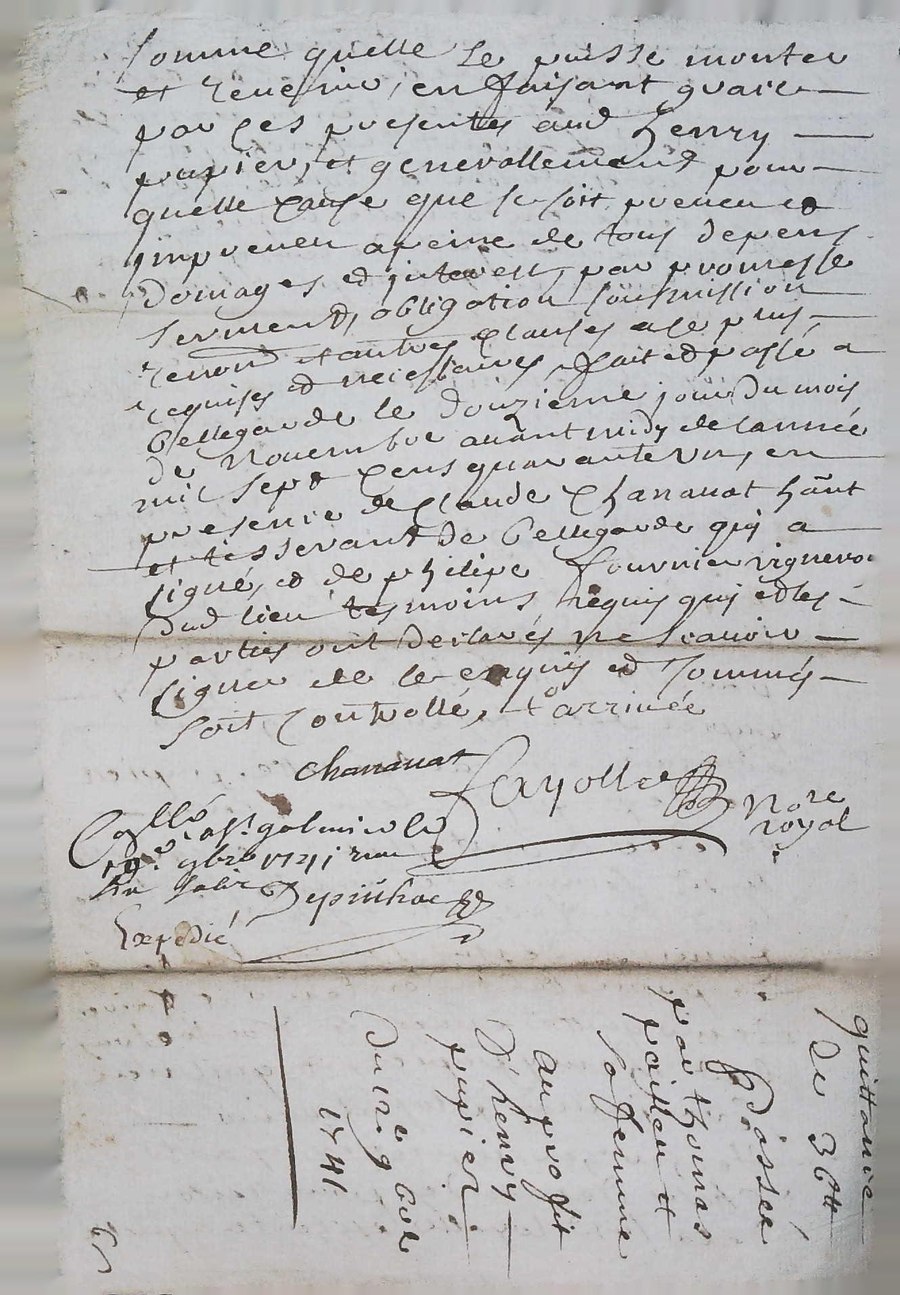 somme quelle se puisse monter
et revenir, en faisant grace
par ces presentes aud henry
pupier, et generallement pour
quelle cause que se soit preveu et
impreveu a peine de tous depens
domages et interest, par promesse
serment, obligation soubmission
renond et autres clauses a ce plus
requises et necessaires, fait et passé a
bellegarde le douzieme jour du mois
de novembre avant midy de lannée
mil sept cens quarante un, en
presence de Claude Chanavat hant
et desservant de bellegarde qui a
signé, et de philipe fournier vigneron
dud lieu tesmoins requis qui et les
parties ont declarés ne scavoir
signer de ce enquis et sommés
soit controllé, arrivée
Chanavat
fayolle
Nore
royal
Collé a st galmier le
19e 9bre 1741 Reçu
Depinhac
Expedié
quittance
De 36tt
Passée
par thomas
paillu et
sa femme
au profit
D'henry
pupier
Du 12e 9bre
1741